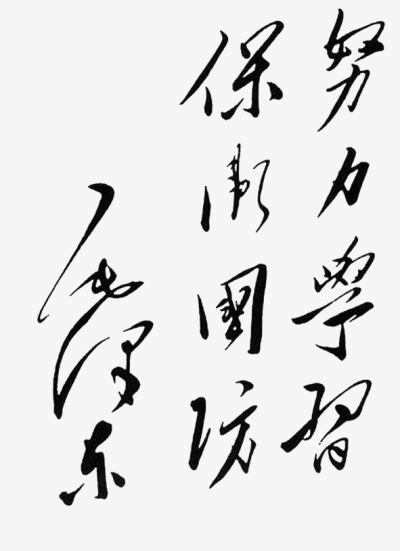 努力學習
保衛國防
毛澤东